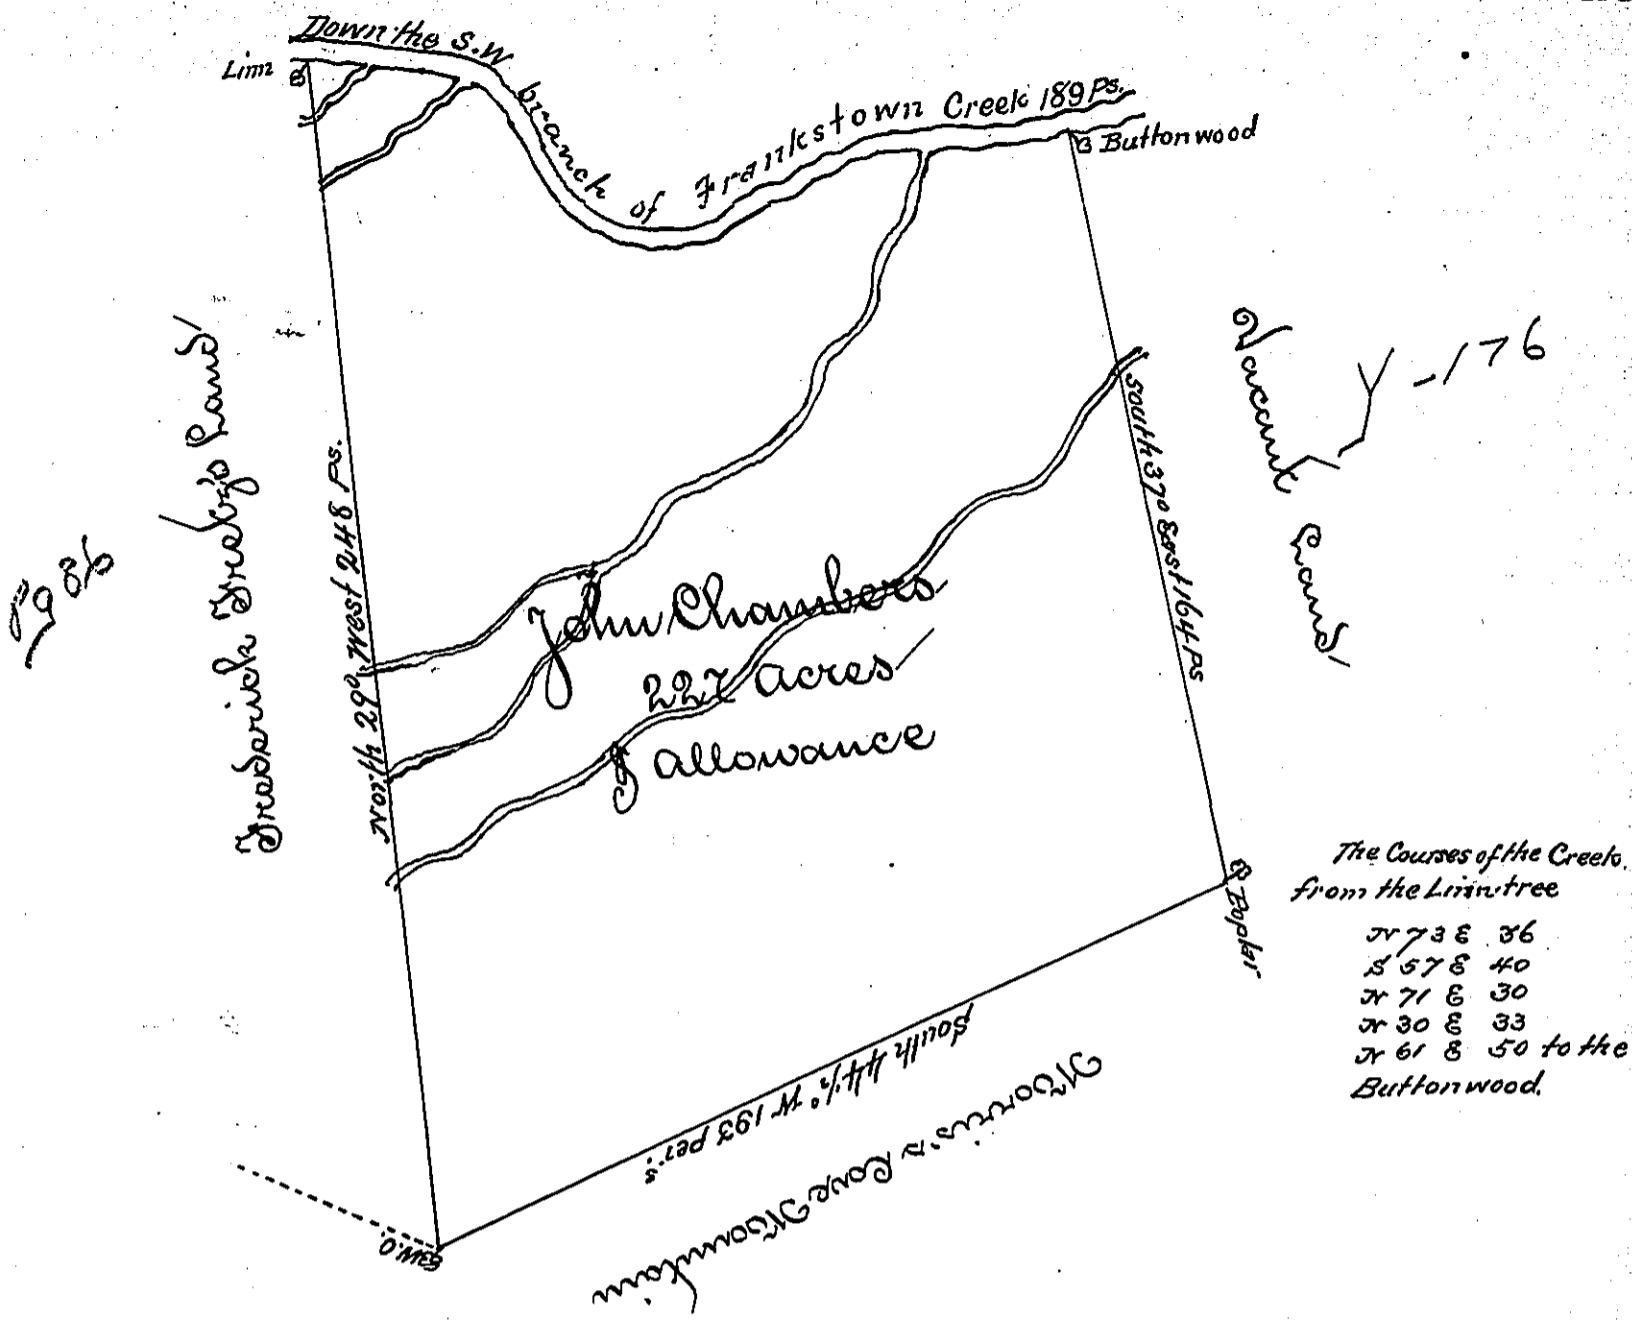 Down the S.W branch of Frankstown Creek 189 Ps.
Linn
Buttonwood
Frederick
Land
North 29° West 248 Ps.
Pg 86
South 37° East 164 Ps
Vacant Land
Y-176
John Chambers
227 acres
& allowance
Poplar
South 44 1/2° W 193 per.s
Morris's Cove Mountain
W.O.
The Courses of the Creek.
from the Linn tree
N 73 E 36
S 57 E 40
N 71 E 30
N 30 E 33
N 61 E 50 to the
Buttonwood.